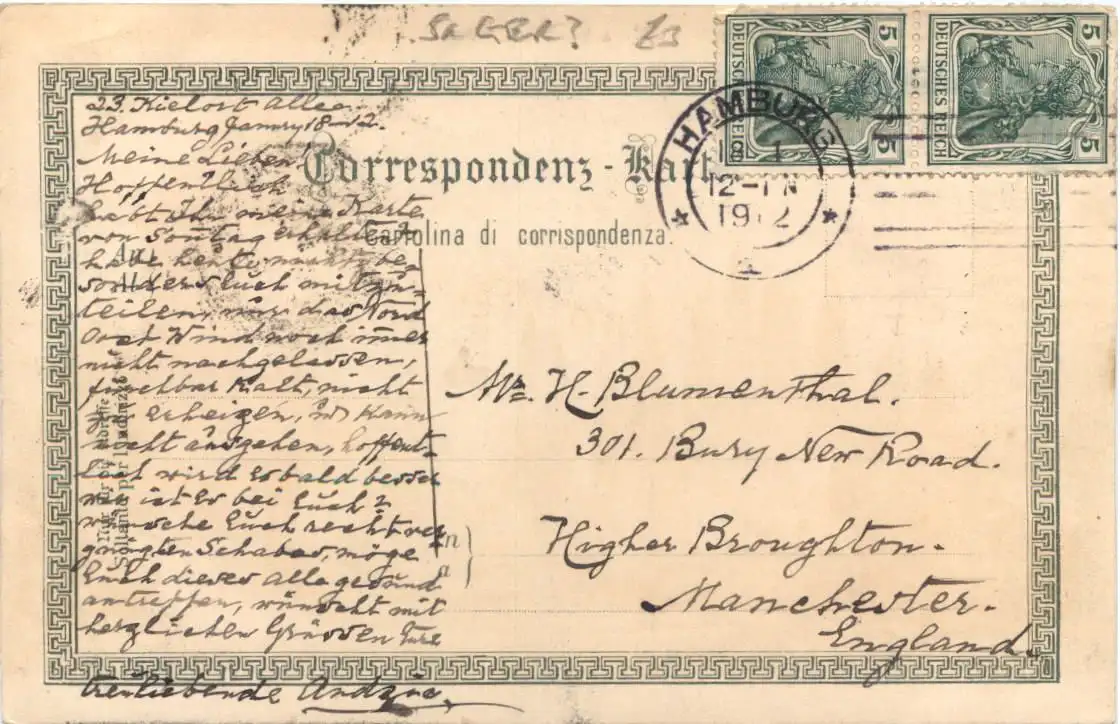 SAGER? £3
DEUTSCHES REICH 5 5
DEUTSCHES REICH 5 5
HAMBURG
12-1 N
1912
1
Correspondenz - Karte
Cartolina di corrispondenza.
23. Kielort Allee
Hamburg 18
Meine Lieben
Hoffentlich
habt Ihr meine Karte
von Sontag erhalten
habe heute nichts be-
sonders Euch mitzu-
teilen, nur das Nord
Ost Wind noch immer
nicht nachgelassen,
furchbar Kalt, nicht
zu erheizen, kann
nicht ausgehen, hoffent-
lich wird es bald besser
wie ist Es bei Euch?
wünsche Euch recht ver-
gnügten Schabas, möge
Euch dieses alle gesund
antreffen, wünscht mit
herzlichen Grüssen Eure
treuliebende
Nur für die Adresse
Soltanto per l'indirizzo
An
a
H. Blumenthal.
301. Bury New Road.
Higher Broughton.
Manchester.
England.